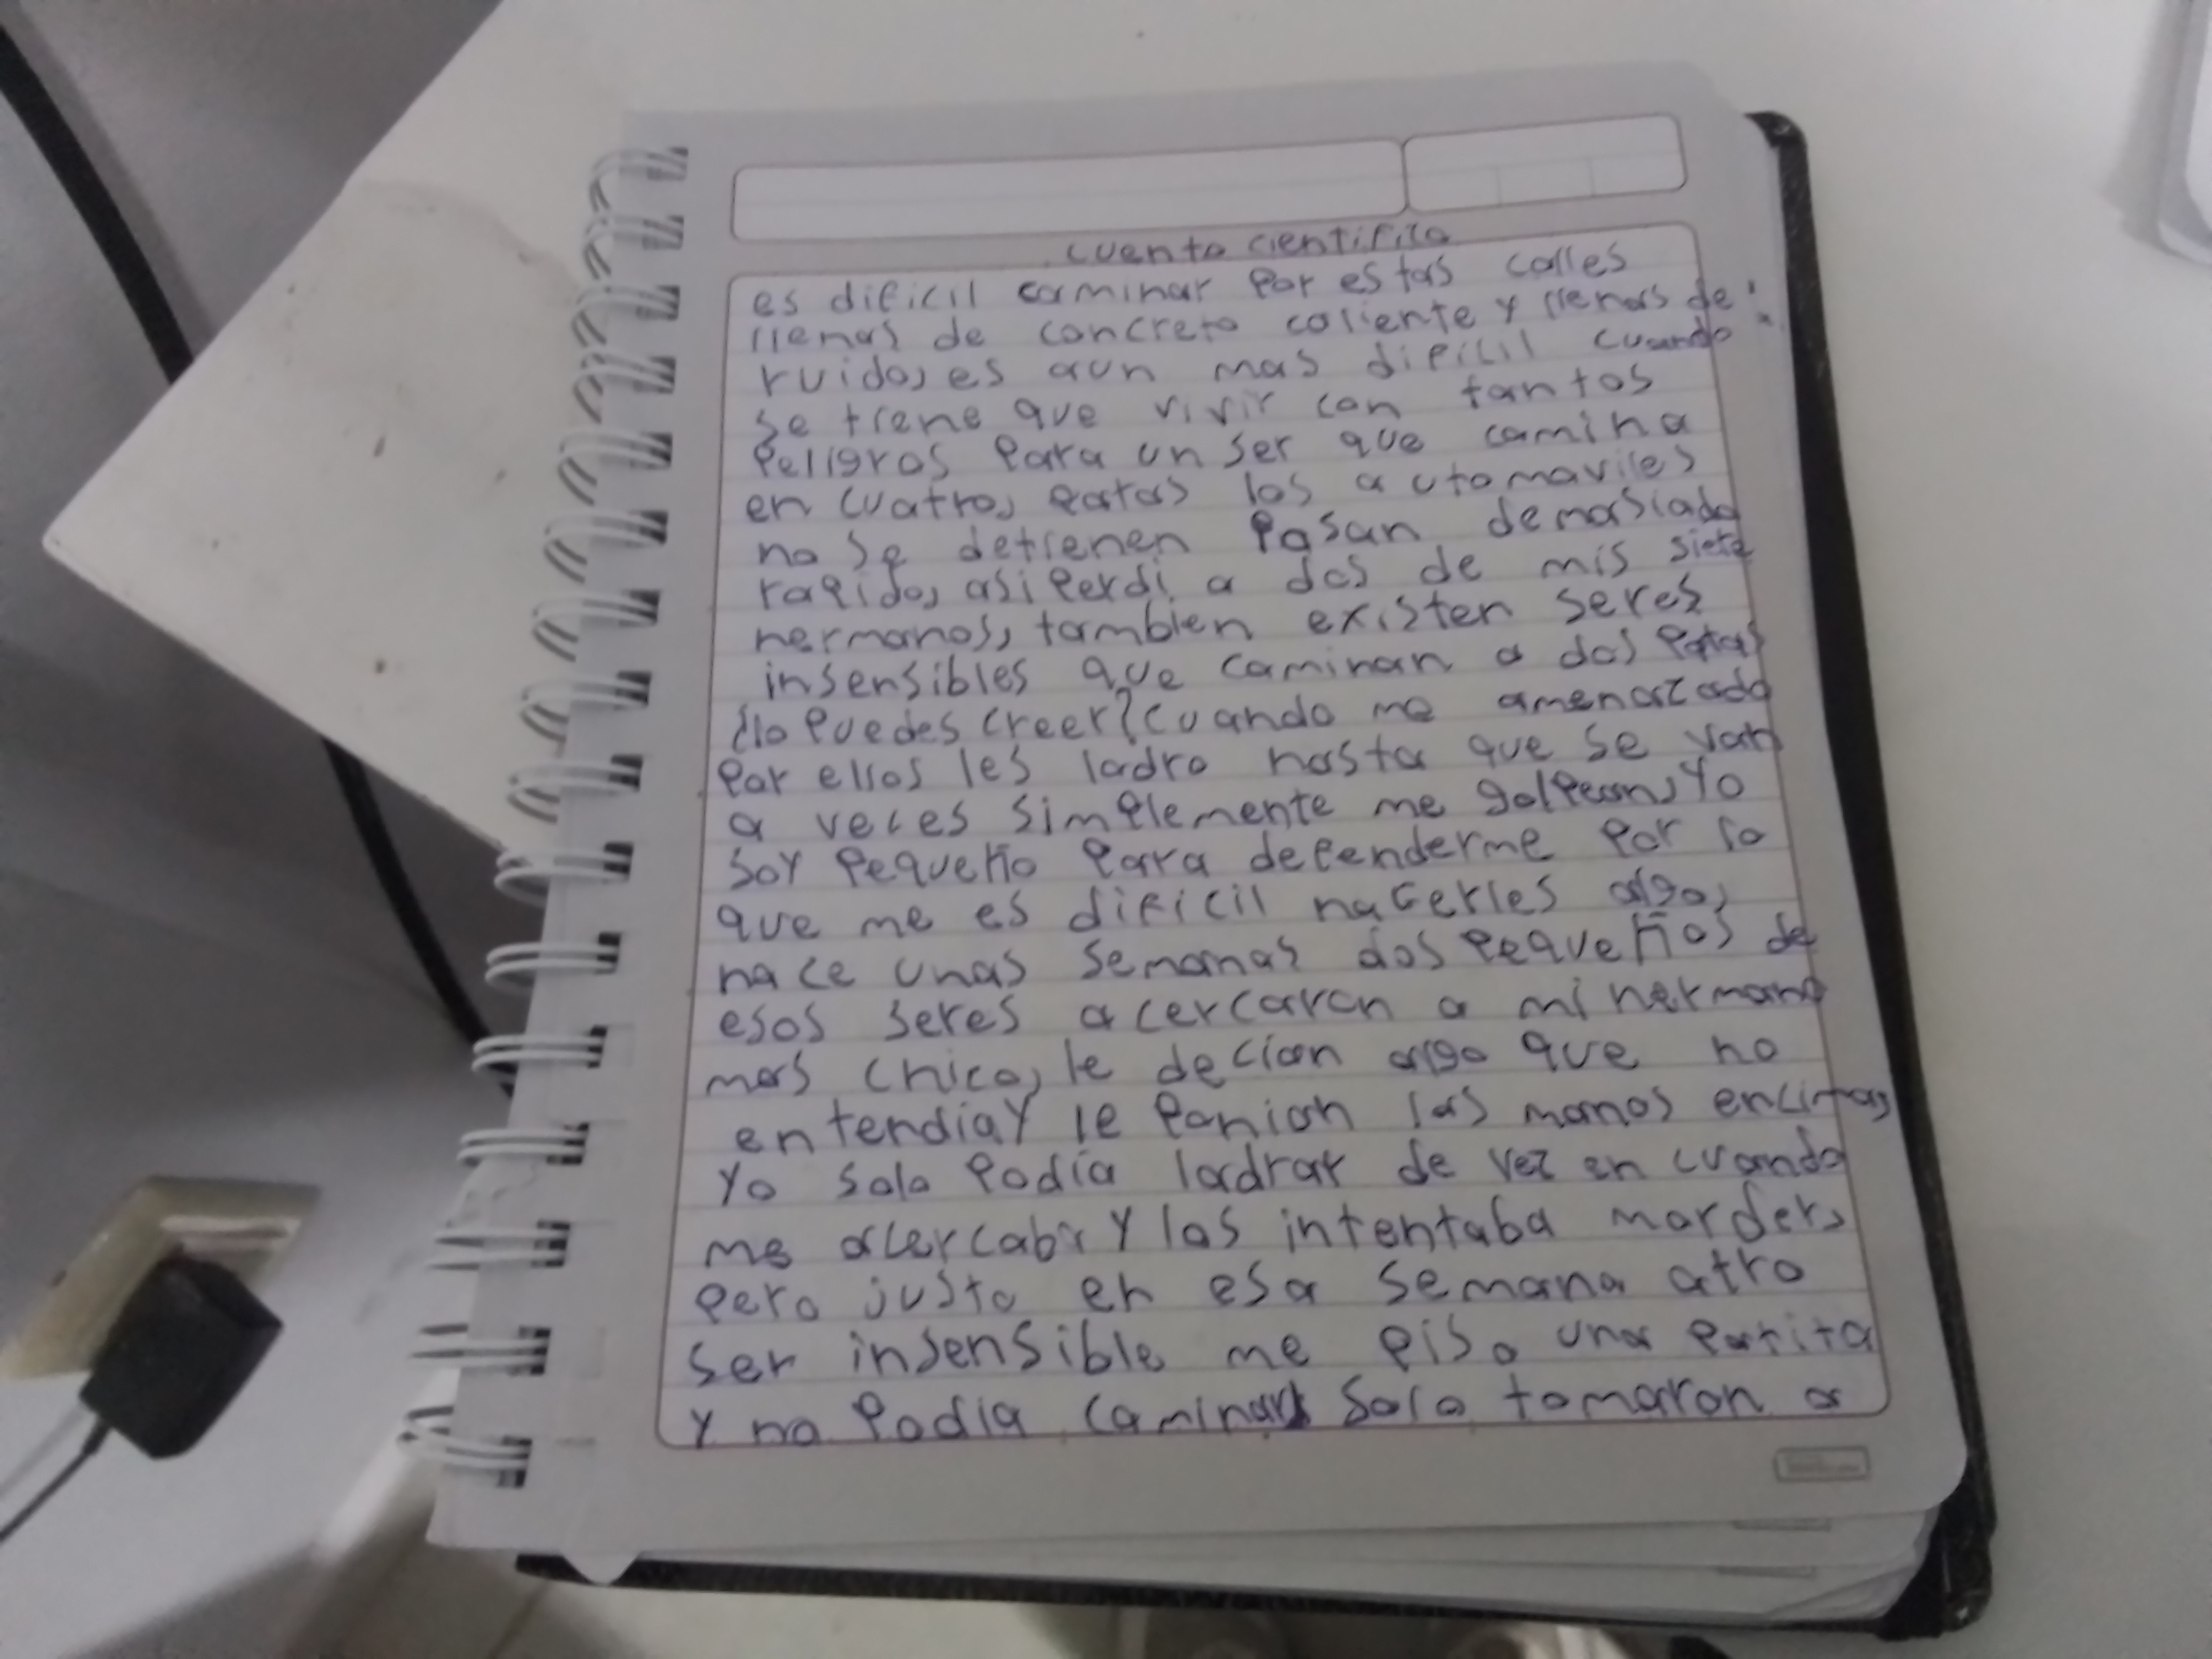 cuento cientifico
es dificil caminar por estas calles
llenas de concreto caliente y llenas de
ruido, es aun mas dificil cuando
se tiene que vivir con tantos
peligros para un ser que camina
en cuatro, patas los automoviles
no se detienen pasan demasiado
rapido, asi perdi a dos de mis siete
hermanos, tambien existen seres
insensibles que caminan a dos patas
¿lo puedes creer? cuando me amenazado
por ellos les ladro hasta que se van
a veces simplemente me golpean, yo
soy pequeño para defenderme por lo
que me es dificil hacerles algo,
hace unas semanas dos pequeños de
esos seres acercaron a mi hermano
mas chico, le decian algo que no
entendia y le ponian las manos encimas
yo solo podia ladrar de vez en cuando
me acercaba y los intentaba morder,
pero justo en esa semana otro
ser insensible me piso una patita
y no podia caminar solo tomaron a